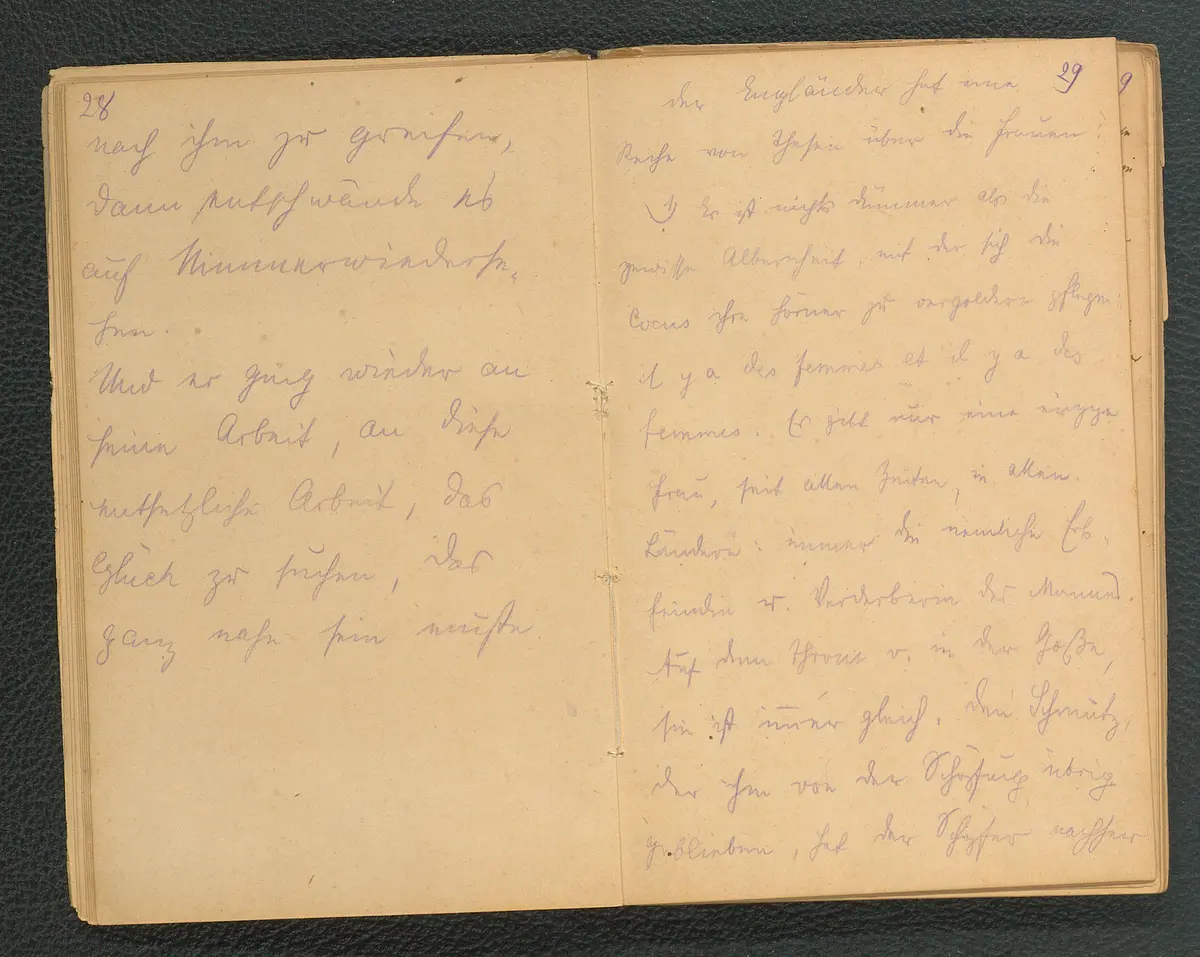 28
nach ihm zu greifen,
dann entschwände es
auf Nimmerwiederse-
hen.
Und er ging wieder an
seine Arbeit, an diese
entsetzliche Arbeit, das
Glück zu suchen, das
ganz nahe sein mußte
29
der Engländer hat eine
Reihe von Thesen über die Frauen:
1) Es ist nichts dümmer als die
gewisse Albernheit, mit der sich die
Cocus ihre Hörner zu vergolden pflegen:
il y a des femmes et il y a des
femmes. Es gibt nur eine einzige
Frau, seit allen Zeiten, in allen
Ländern: immer die nemliche Erb-
feindin u. Verderberin des Mannes.
Auf dem Throne o. in der Goße,
sie ist im̄er gleich. Den Schmutz,
der ihm von der Schöpfung übrig
geblieben, hat der Schöpfer nachher
9